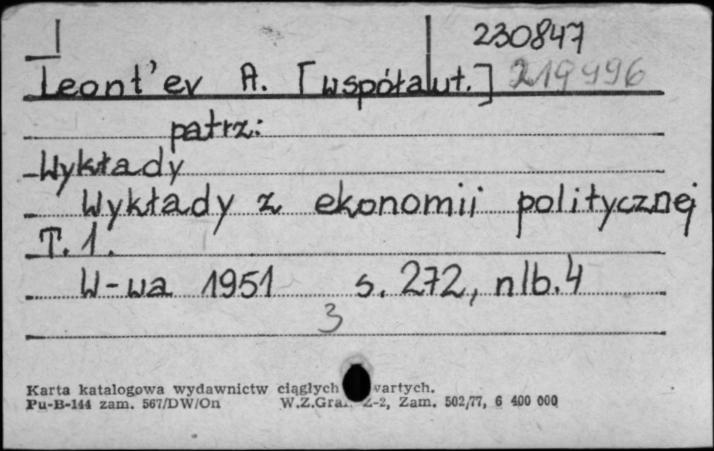 230847
Leont'ev A. [współaut.] 219996
patrz:
Wykłady
Wykłady z ekonomii politycznej
T. 1.
W-wa 1951 s. 272, nlb. 4
3
Karta katalogowa wydawnictw ciągłych wartych.
Pu-B-144 zam. 567/DW/On W.Z.Graf. Z-2, Zam. 502/77, 6 400 000